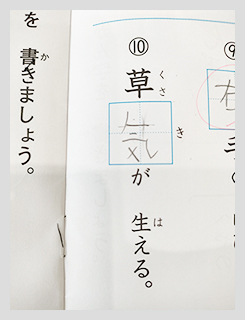 ⑨
⑩草気が生える。
くさ
き
は
を書きましょう。
か